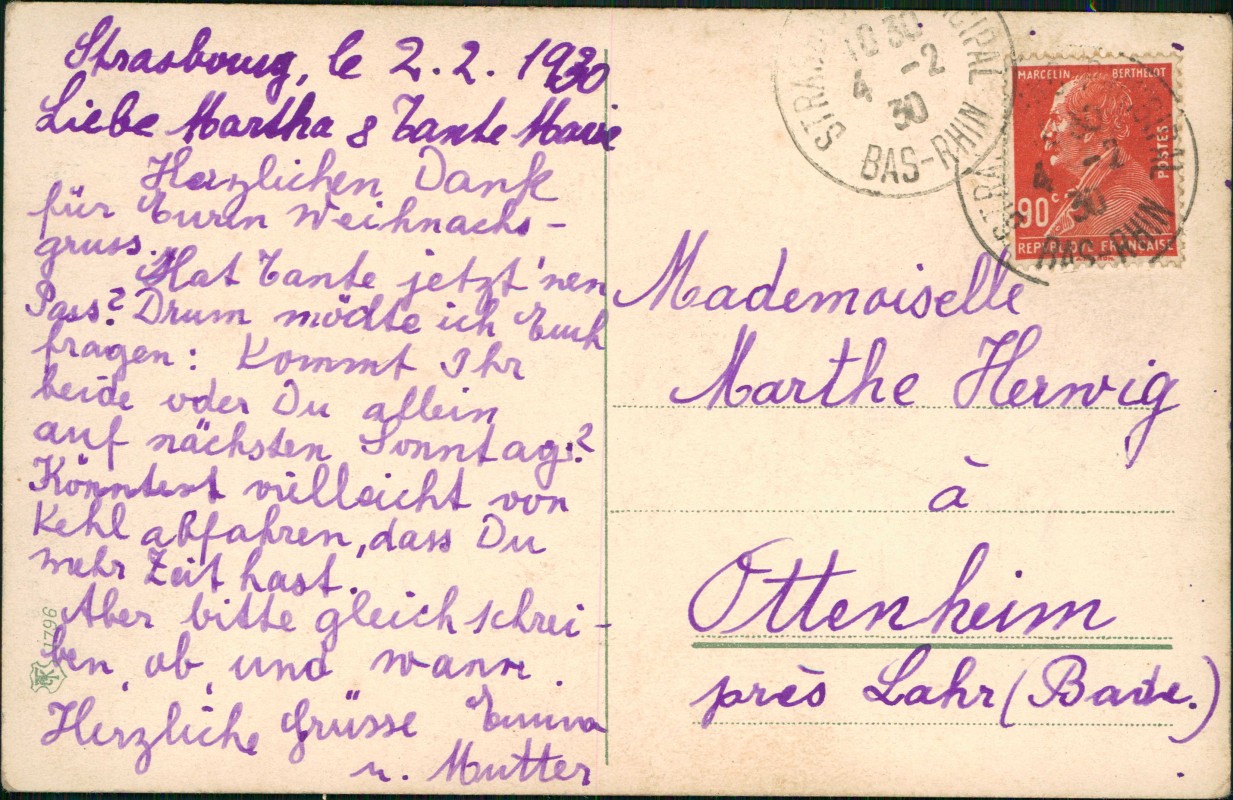 Strasbourg, le 2.2.1930
Liebe Martha & Tante Marie
Herzlichen Dank
für Euren Weihnachs-
gruss.
Hat Tante jetzt 'nen
Pass? Drum möchte ich Euch
fragen: Kommt Ihr
beide oder Du allein
auf nächsten Sonntag?
Könntest vielleicht von
Kehl abfahren, dass Du
mehr Zeit hast.
Aber bitte gleich schrei-
ben, ob, und wann.
Herzliche Grüsse Emma
u. Mutter
1796
STRASBOURG PRINCIPAL
10 30
4 -2
30
BAS-RHIN
MARCELIN BERTHELOT
POSTES
90c
REPUBLIQUE FRANÇAISE
4 -2
30
BAS-RHIN
Mademoiselle
Marthe Herwig
à
Ottenheim
près Lahr (Bade.)